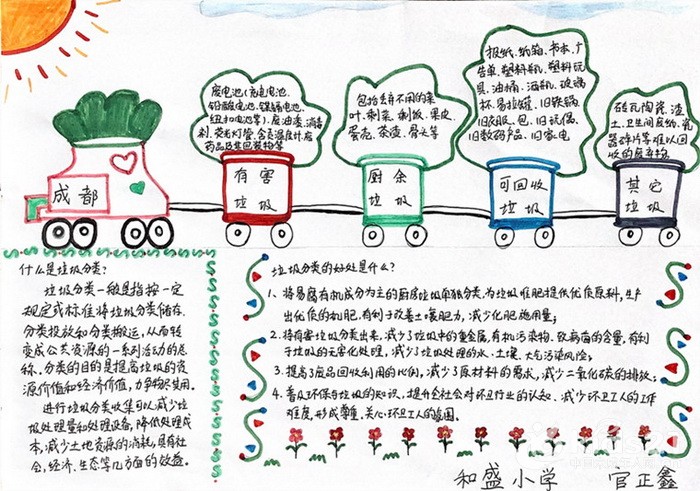 废电池(充电电池、
铅酸电池、镍镉电池、
纽扣电池等)、废油漆、消毒
剂、荧光灯管、含汞温度计、废
药品及其包装物等
包括丢弃不用的菜
叶、剩菜、剩饭、果皮、
蛋壳、茶渣、骨头等
报纸、纸箱、书本、广
告单、塑料瓶、塑料玩
具、油桶、酒瓶、玻璃
杯、易拉罐、旧铁锅、
旧衣服、包、旧玩偶、
旧数码产品、旧家电
砖瓦陶瓷、渣
土、卫生间废纸、瓷
器碎片等难以回
收的废弃物
成都
有害
垃圾
厨余
垃圾
可回收
垃圾
其它
垃圾
什么是垃圾分类?
垃圾分类一般是指按一定
规定或标准将垃圾分类储存、
分类投放和分类搬运,从而转
变成公共资源的一系列活动的总
称。分类的目的是提高垃圾的资
源价值和经济价值,力争物尽其用。
进行垃圾分类收集可以减少垃
圾处理量和处理设备,降低处理成
本,减少土地资源的消耗,具有社
会、经济、生态等几方面的效益。
垃圾分类的好处是什么?
1、将易腐有机成分为主的厨房垃圾单独分类,为垃圾堆肥提供优质原料,生产
出优质的机肥,有利于改善土壤肥力,减少化肥施用量;
2、将有害垃圾分类出来,减少了垃圾中的重金属、有机污染物、致病菌的含量,有利
于垃圾的无害化处理,减少了垃圾处理的水、土壤、大气污染风险;
3、提高了废品回收利用的比例,减少了原材料的需求,减少二氧化碳的排放;
4、普及环保与垃圾的知识,提升全社会对环卫行业的认知、减少环卫工人的工作
难度,形成尊重、关心环卫工人的氛围。
和盛小学 官正鑫